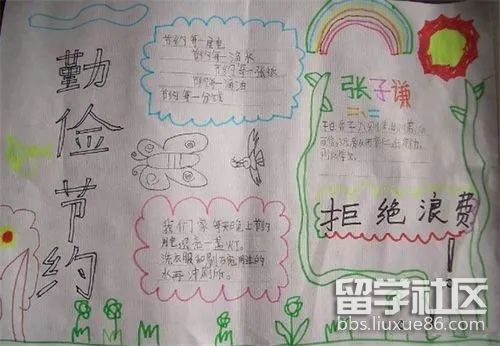 勤
俭
节
约
节约每一度电
节约每一滴水
节约每一张纸
节约每一滴油
节约每一分钱
我们家每天晚上节约
用电只亮一盏灯。
洗衣服和刷万完用过的
水再冲厕所。
张子谦
二、二
拒绝浪费!
留学社区
bbs.liuxue86.com